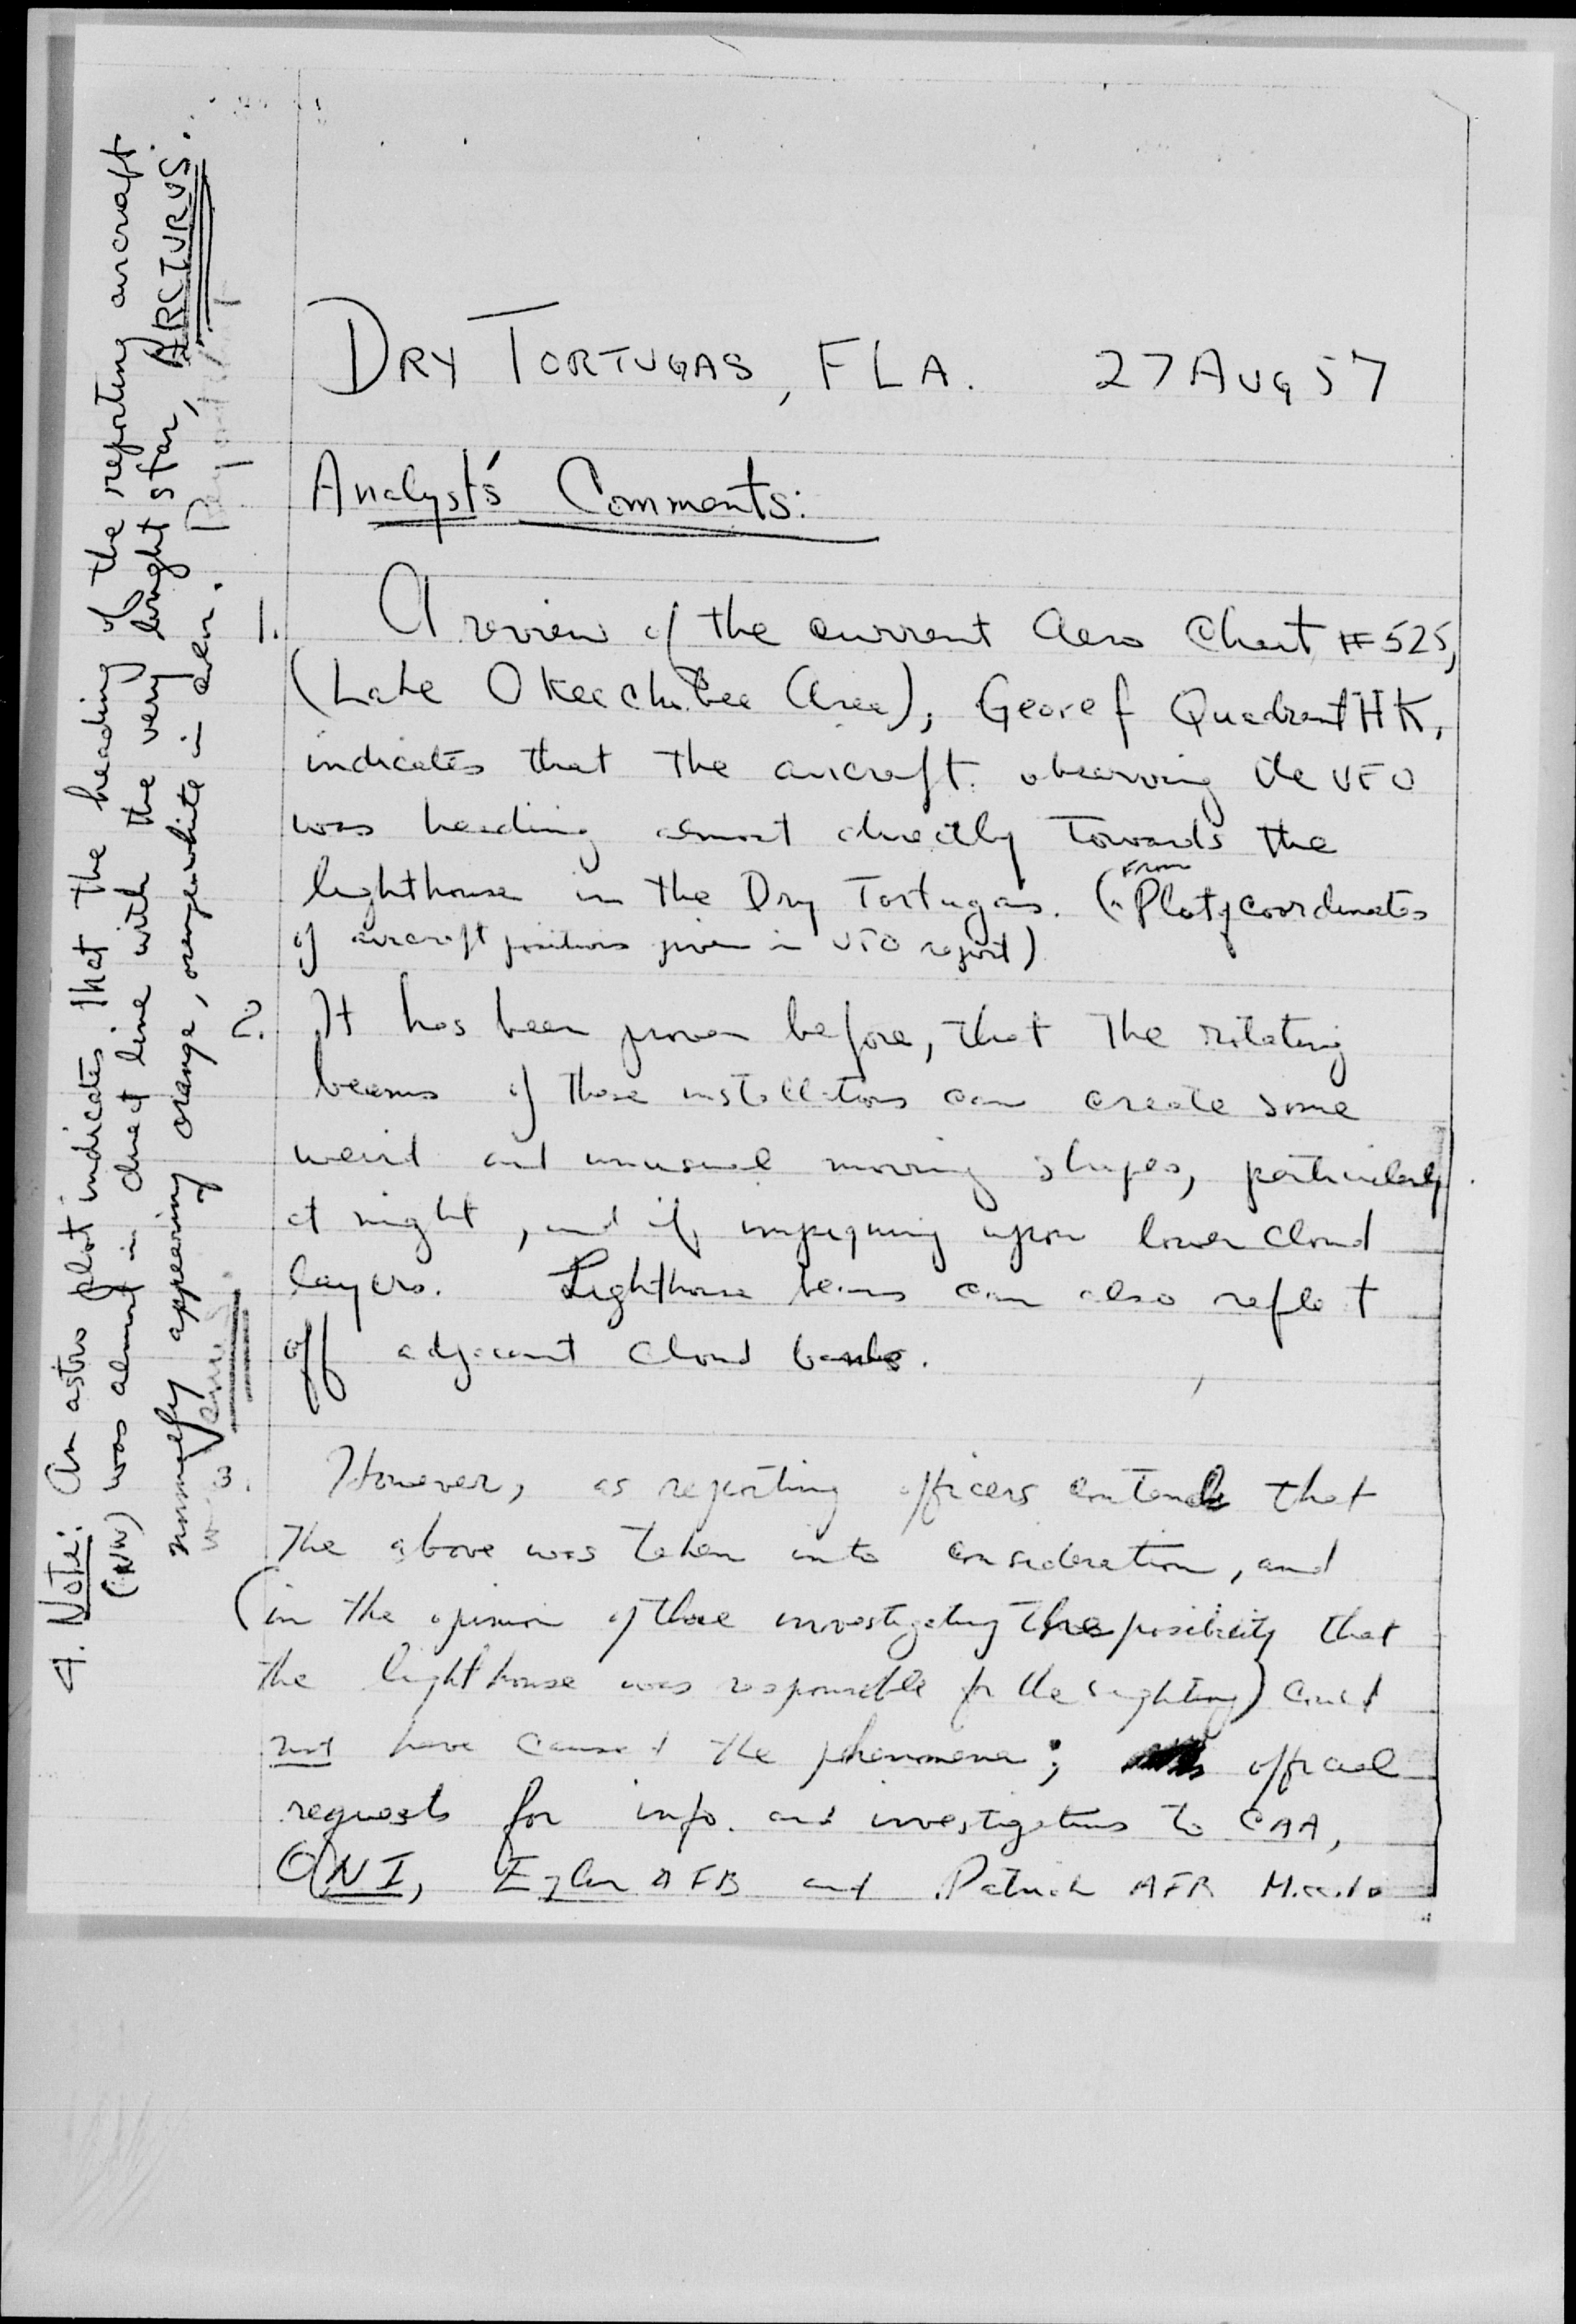 DRY TORTUGAS, FLA. 27 AUG 57
Analyst's Comments:
1. A review of the current Aero Chart #525,
(Lake Okeechobee Area), Georef Quadrant HK,
indicates that the aircraft observing the UFO
was heading almost directly towards the
lighthouse in the Dry Tortugas. (From Plot of coordinates
of aircraft positions given in UFO report)
2. It has been proven before, that the rotating
beams of these installations can create some
weird and unusual moving shapes, particularly
at night, and if impinging upon lower cloud
layers. Lighthouse beams can also reflect
off adjacent cloud banks.
3. However, as reporting officers contend that
the above was taken into consideration, and
(in the opinion of those investigating the possibility that
the lighthouse was responsible for the sighting) could
not have caused the phenomena; official
requests for info. and investigations to CAA,
ONI, Eglin AFB and Patrick AFB
4. Note: An astro plot indicates that the heading of the reporting aircraft
(NW) was almost in direct line with the very bright star, ARCTURUS.
normally appearing orange, orange-white in color.